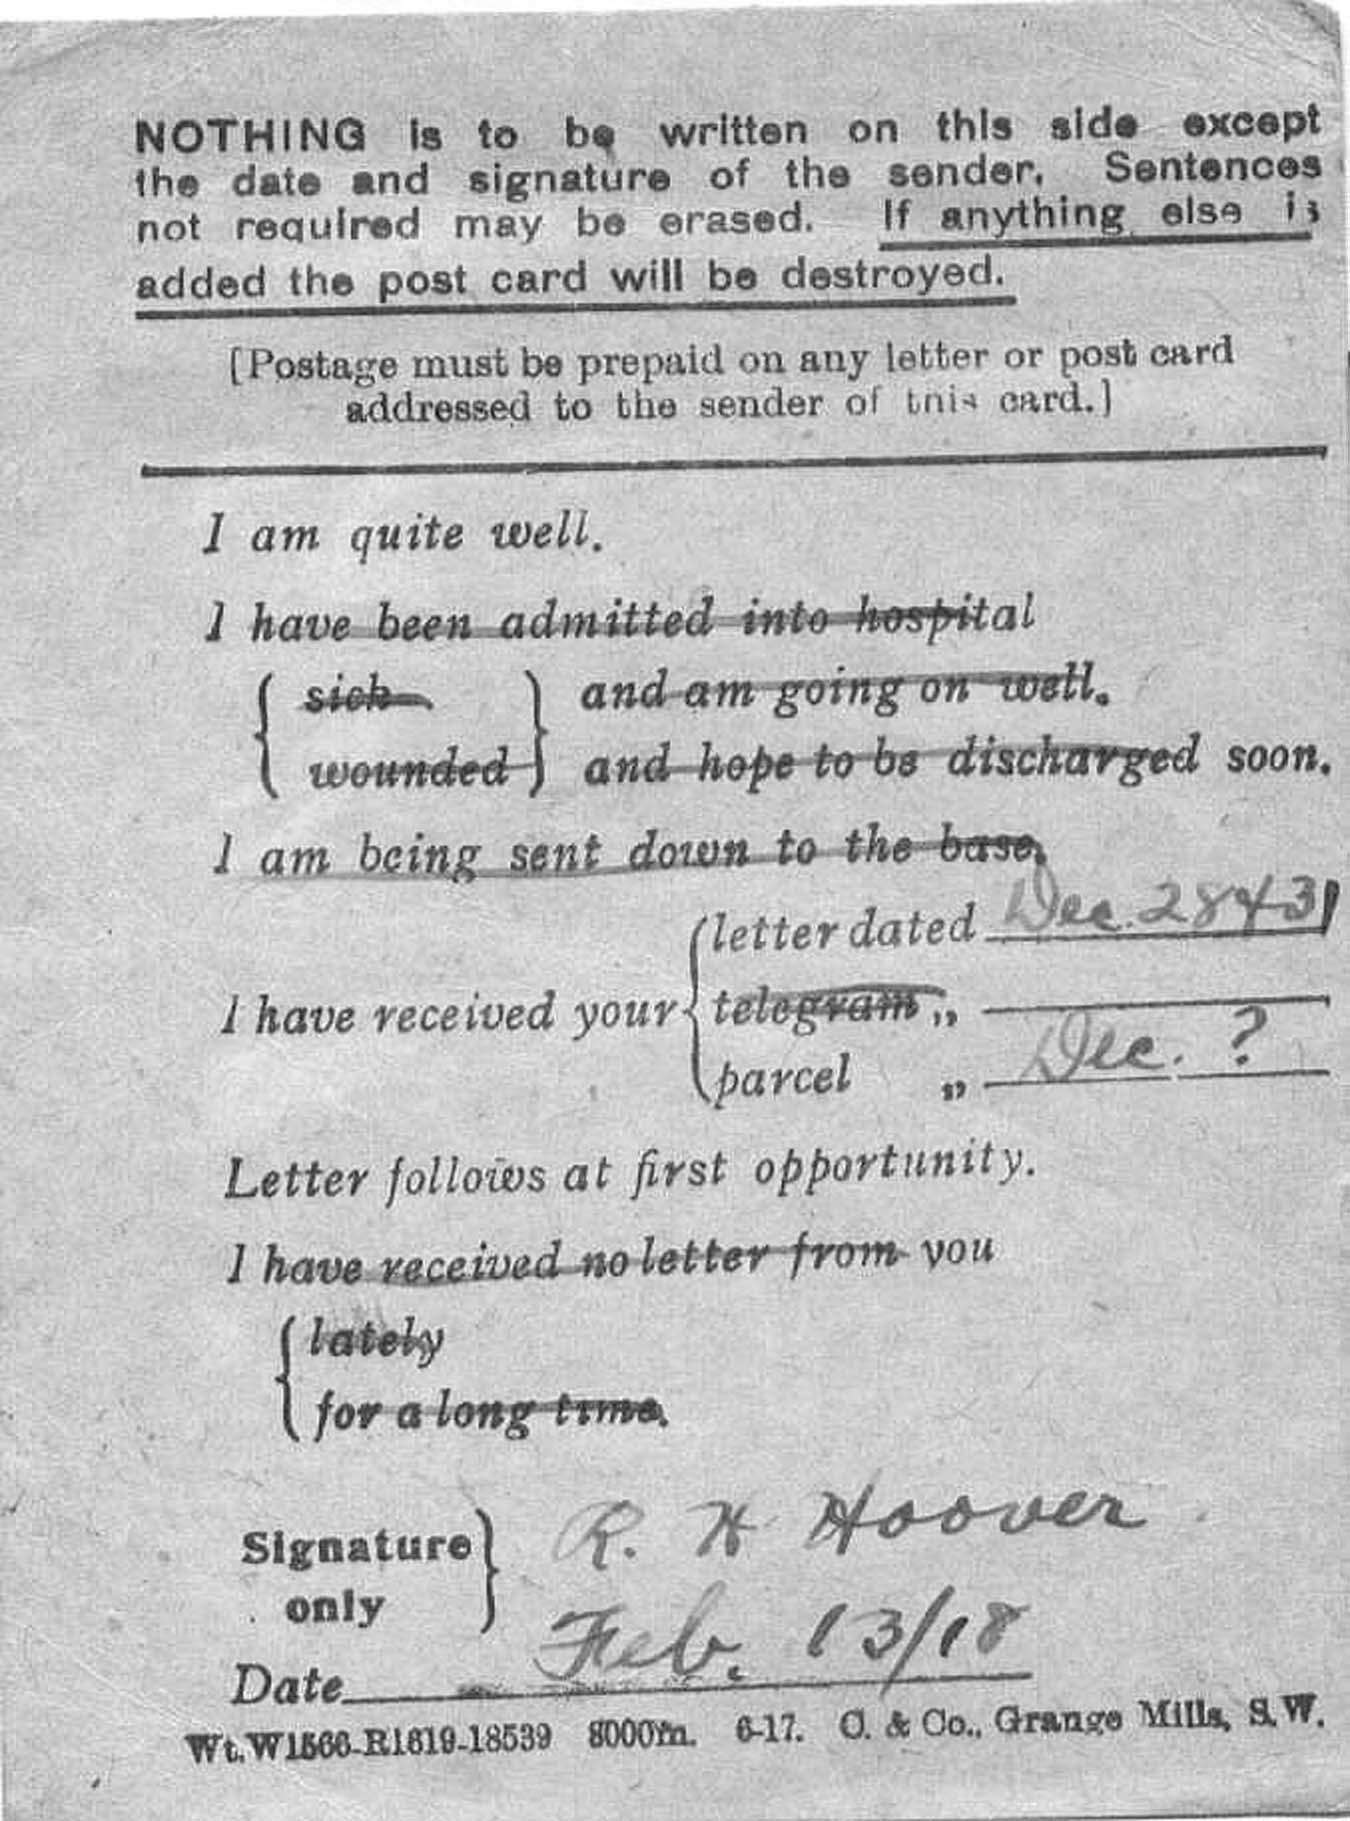 NOTHING is to be written on this side except
the date and signature of the sender. Sentences
not required may be erased. If anything else is
added the post card will be destroyed.
[Postage must be prepaid on any letter or post card
addressed to the sender of this card.]
I am quite well.
I have been admitted into hospital
sick } and am going on well.
wounded } and hope to be discharged soon.
I am being sent down to the base.
letter dated Dec. 28 & 31
I have received your { telegram „
parcel „ Dec. ?
Letter follows at first opportunity.
I have received no letter from you
lately
for a long time.
Signature
only } R. H Hoover
Date Feb. 13/18
Wt.W1566-R1619-18539 8000m. 6-17. C. & Co., Grange Mills, S.W.